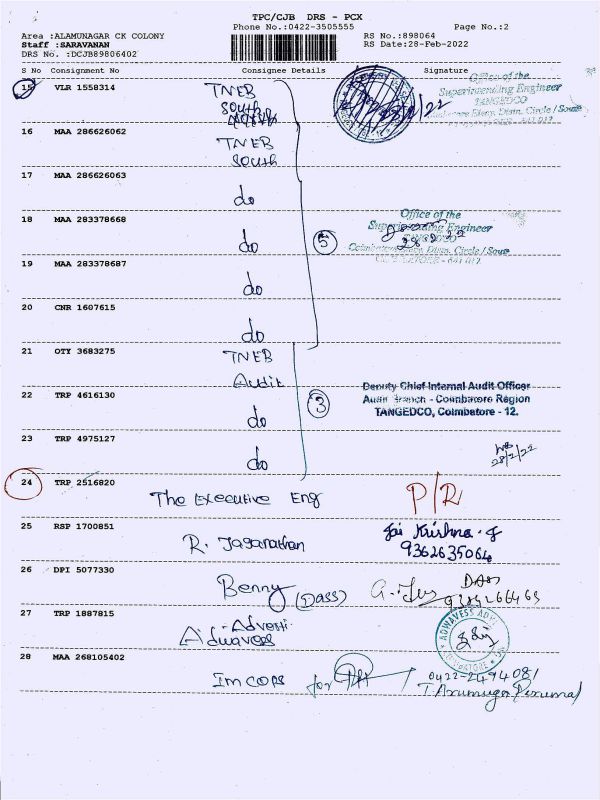 TPC/CJB DRS - PCX
Phone No.:0422-3505555 Page No.:2
Area :ALAMUNAGAR CK COLONY RS No.:898064
Staff :SARAVANAN RS Date:28-Feb-2022
DRS No. :DCJB89806402
S No Consignment No Consignee Details Signature
15 VLR 1558314 TNEB
South
Office of the
Superintending Engineer
TANGEDCO
Elecy. Distn. Circle / South
16 MAA 286626062 TNEB
South
17 MAA 286626063 do
18 MAA 283378668 do
5
Office of the
Superintending Engineer
Coimbatore Elecy. Distn. Circle / South
19 MAA 283378687 do
20 CNR 1607615 do
21 OTY 3683275 TNEB
Audit
22 TRP 4616130 do
3
Deputy Chief Internal Audit Officer
Audit Branch - Coimbatore Region
TANGEDCO, Coimbatore - 12.
23 TRP 4975127 do
28/2/22
24 TRP 2516820 The Executive Eng P/R
25 RSP 1700851 R. Jaganathan Jai Krishna.J
9362635064
26 DPI 5077330 Benny (Dass) DASS
27 TRP 1887815 Adverti
Adwavess
ADWAVESS ADV
COIMBATORE
28 MAA 268105402 Imcops for
0422-2494081
T. Arumuga Perumal